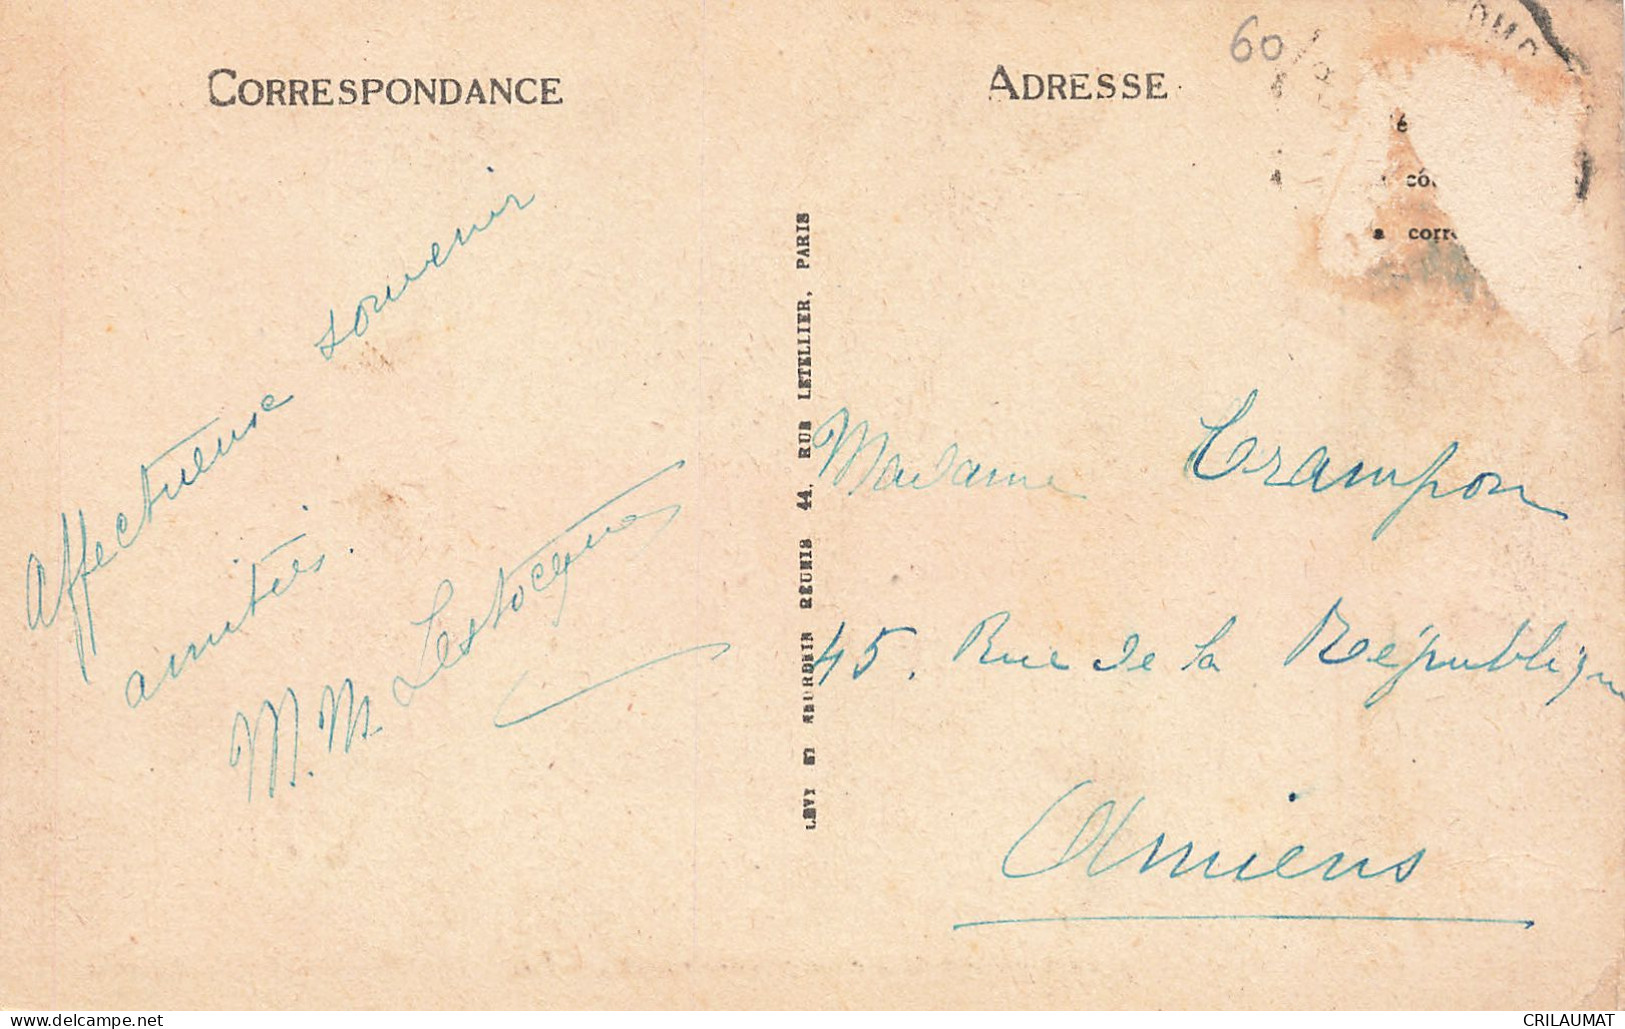 CORRESPONDANCE
ADRESSE
60
é
cô
a corre
Affectueux souvenir
amitiés.
M. M. Lestocquoy
LÉVY ET NEURDEIN RÉUNIS 44, RUE LETELLIER, PARIS
Madame Crampon
45. Rue de la République
Amiens
www.delcampe.net
CRILAUMAT